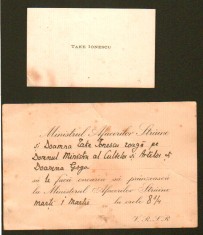 TAKE IONESCU
Ministrul Afacerilor Străine
și Doamna Take Ionescu roagă pe
Domnul Ministru al Cultelor și Artelor și
Doamna Goga
să le facă onoarea să prânzească
la Ministerul Afacerilor Străine
marți 1 Martie la orele 8¼